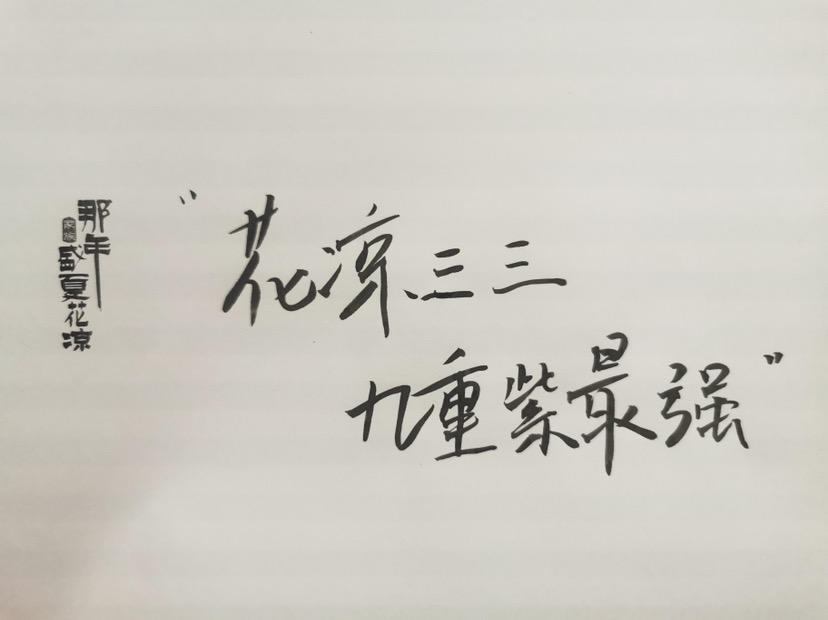 那年
盛夏花凉
"花凉三三
九重紫最强"